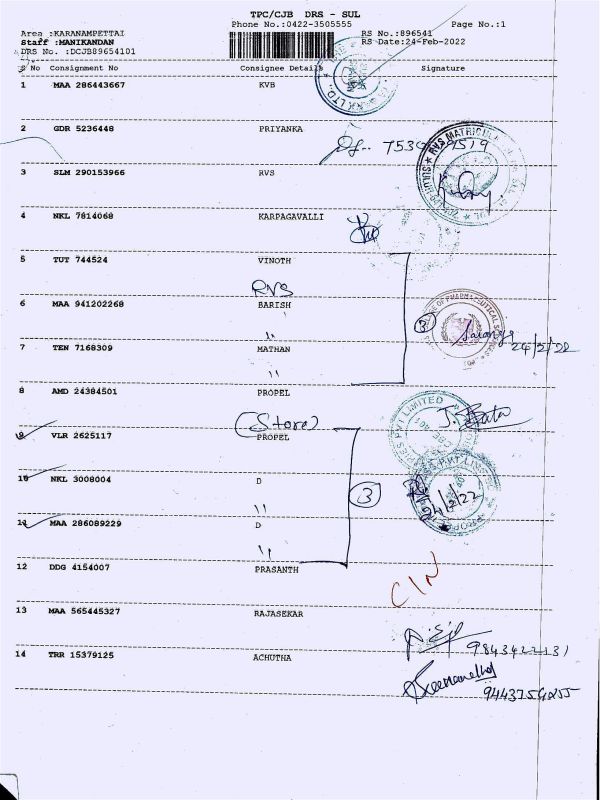 TPC/CJB DRS - SUL
Phone No.:0422-3505555 Page No.:1
Area :KARANAMPETTAI RS No.:896541
Staff :MANIKANDAN RS Date:24-Feb-2022
DRS No. :DCJB89654101
S No Consignment No Consignee Details Signature
1 MAA 286443667 KVB
2 GDR 5236448 PRIYANKA
3 SLM 290153966 RVS
RVS MATRICULATION
4 NKL 7814068 KARPAGAVALLI
5 TUT 744524 VINOTH
RVS
6 MAA 941202268 BARISH
3
OF PHARMACEUTICAL SCIENCES
7 TEN 7168309 MATHAN
24/2/22
8 AMD 24384501 PROPEL
(Store)
LIMITED
9 VLR 2625117 PROPEL
10 NKL 3008004 D
3
11 MAA 286089229 D
12 DDG 4154007 PRASANTH
CIN
13 MAA 565445327 RAJASEKAR
14 TRR 15379125 ACHUTHA